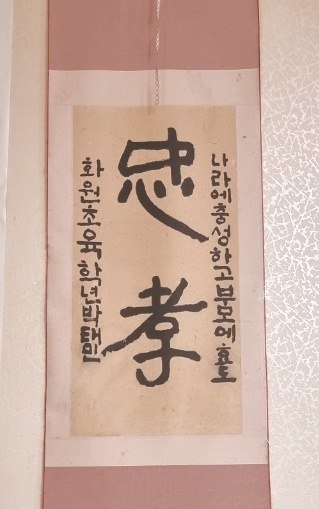 나라에충성하고부모에효도
忠孝
화원초육학년박태민